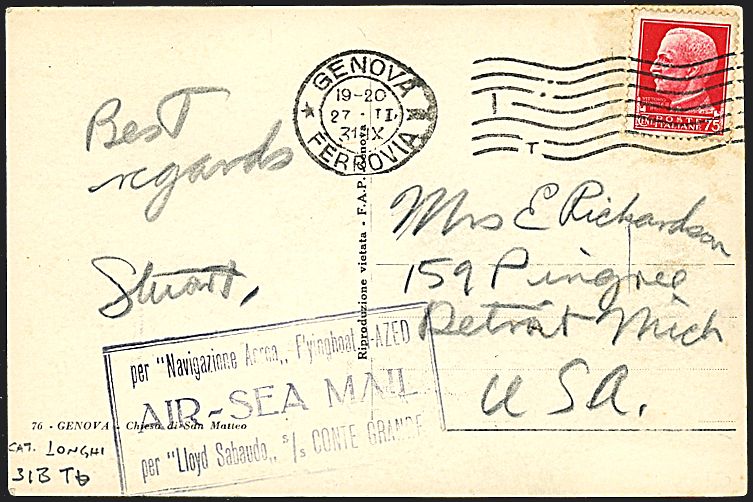 GENOVA
19-20
27 · II.
31 IX
FERROVIA
POSTE
ITALIANE 75
Best
regards
Stuart,
Riproduzione vietata - F.A.P. Genova
Mrs E Richardson
159 Pingree
Detroit Mich
USA.
per "Navigazione Aerea,, Flyingboat I-AZED
AIR-SEA MAIL
per "Lloyd Sabaudo,, s/s CONTE GRANDE
76 - GENOVA - Chiesa di San Matteo
CAT. LONGHI
31B Tb